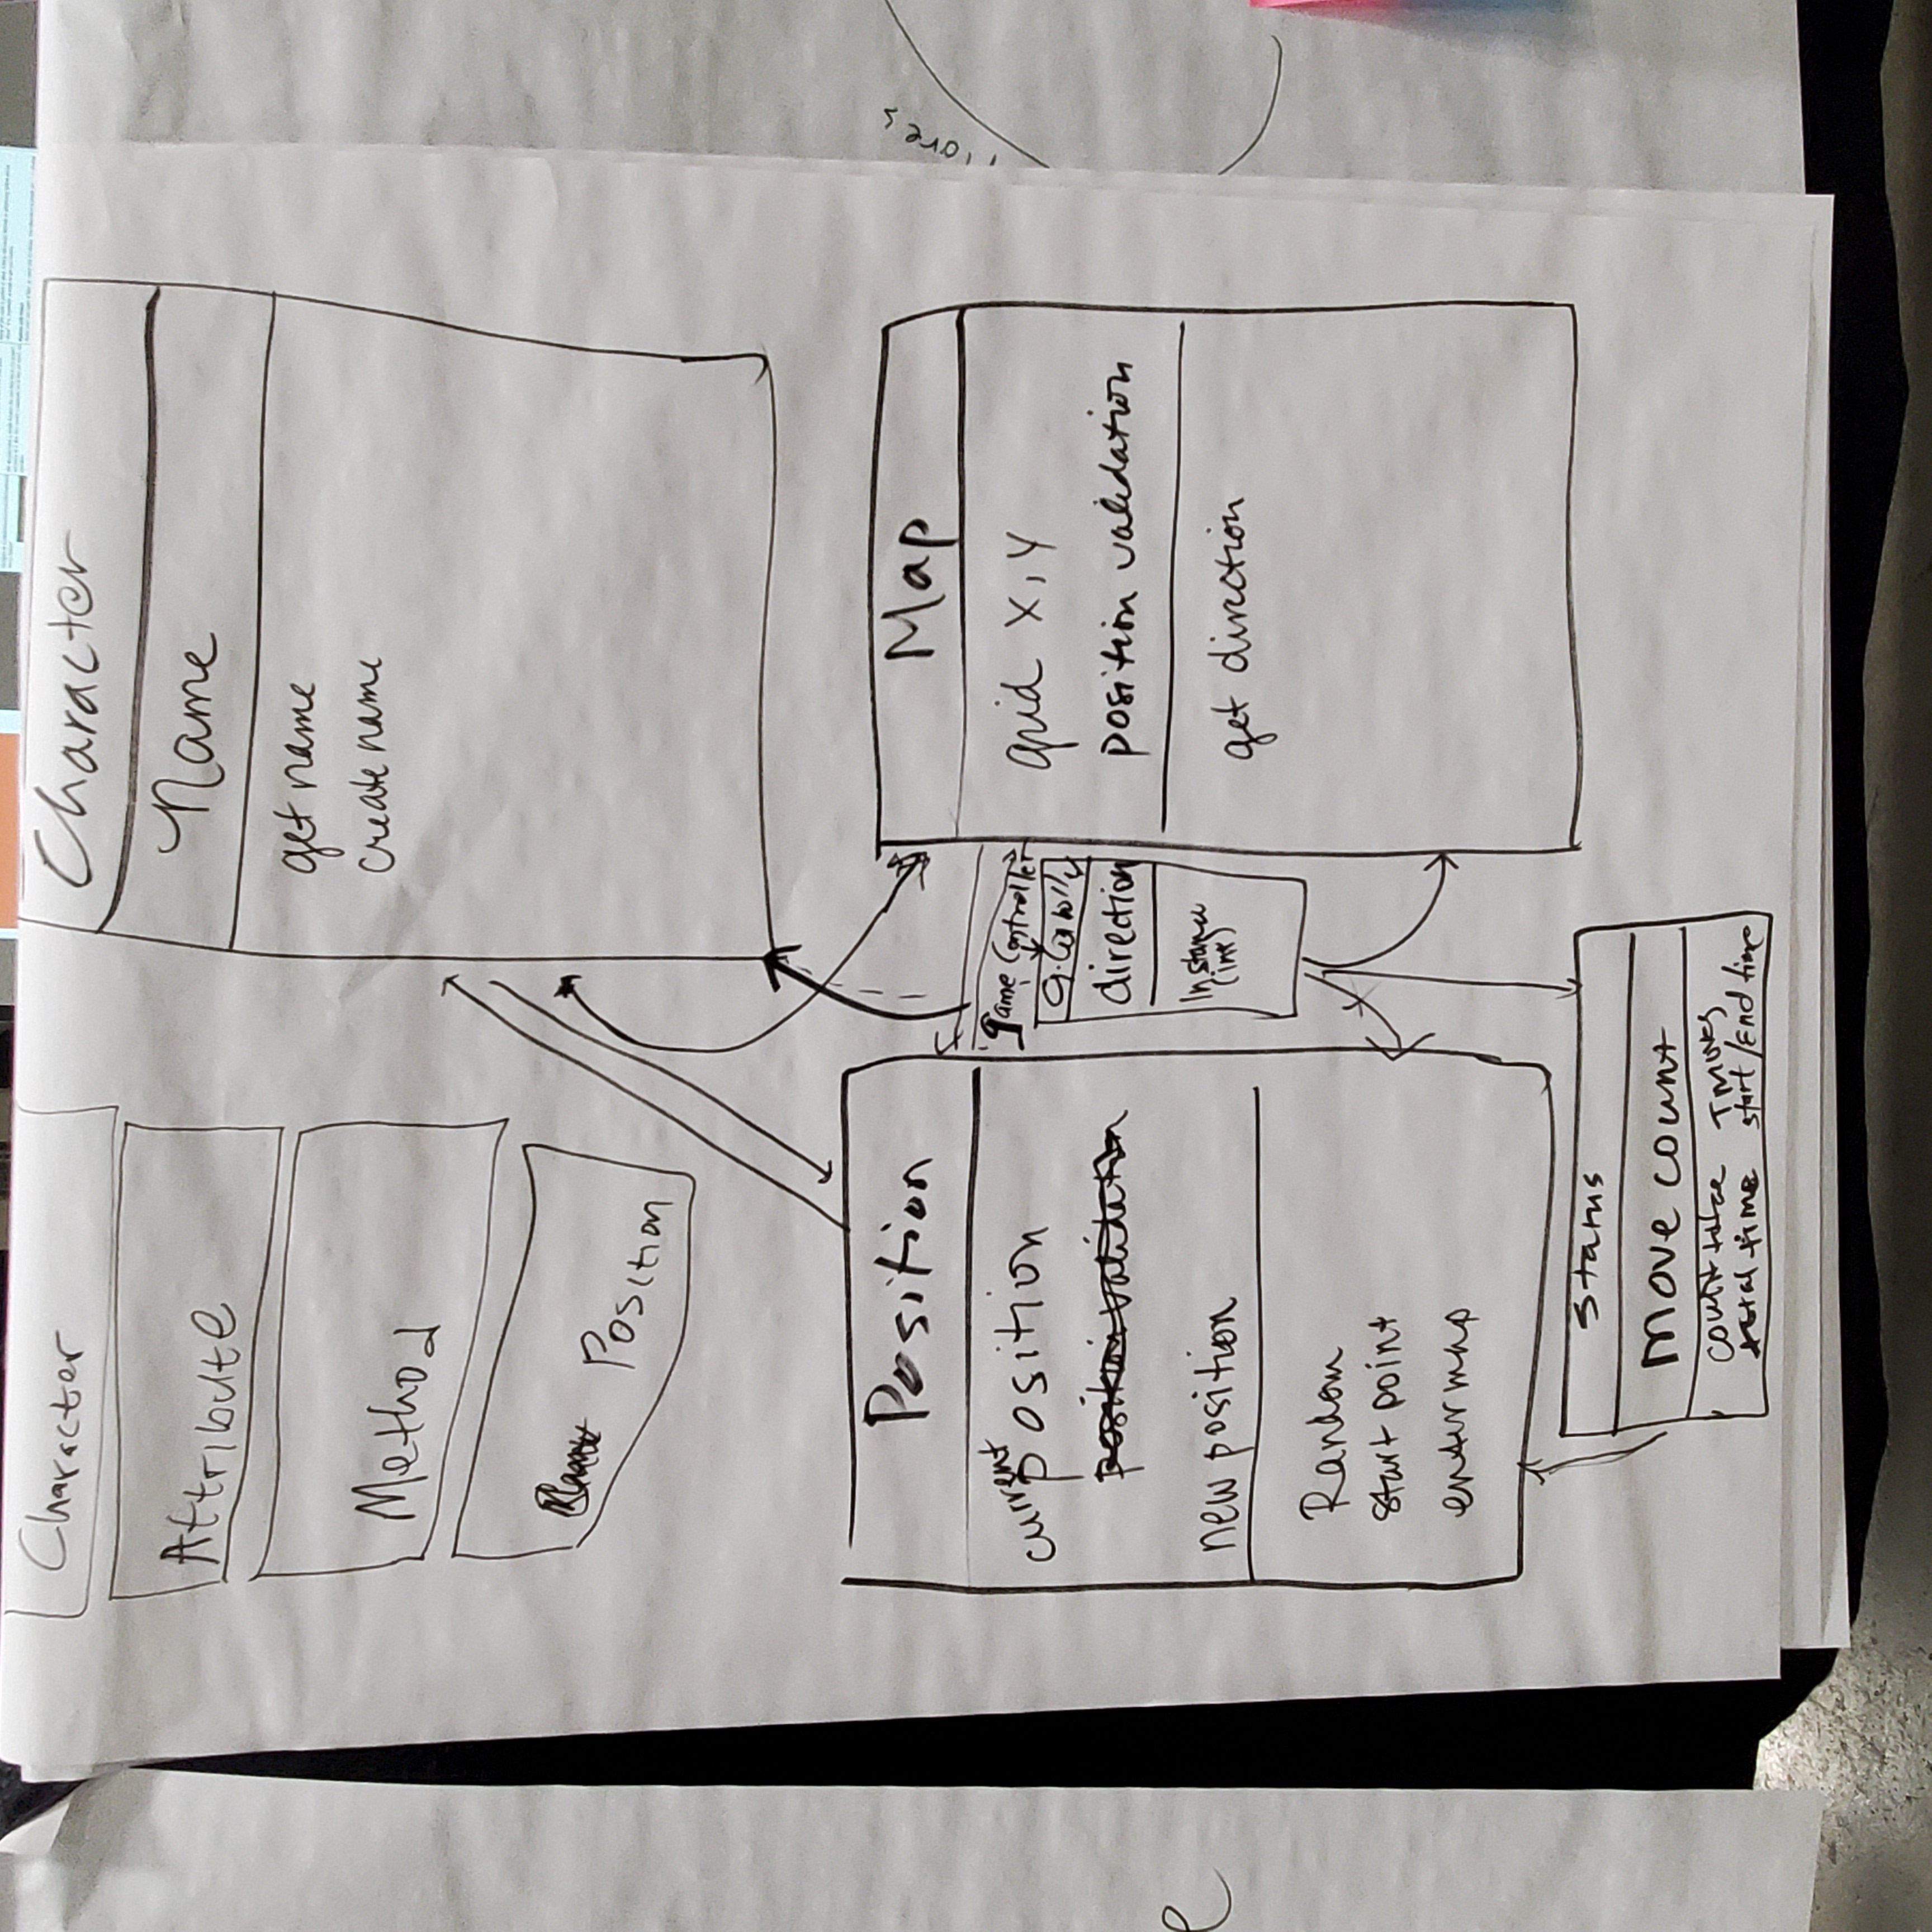 Character
Attribute
Method
Position
Character
Name
get name
create name
Position
current position
position validation
new position
Random
start point
enter map
game Controller
direction
Instance
Map
grid X, Y
position validation
get direction
Status
Move count
count
T Moves
total time
start/End time